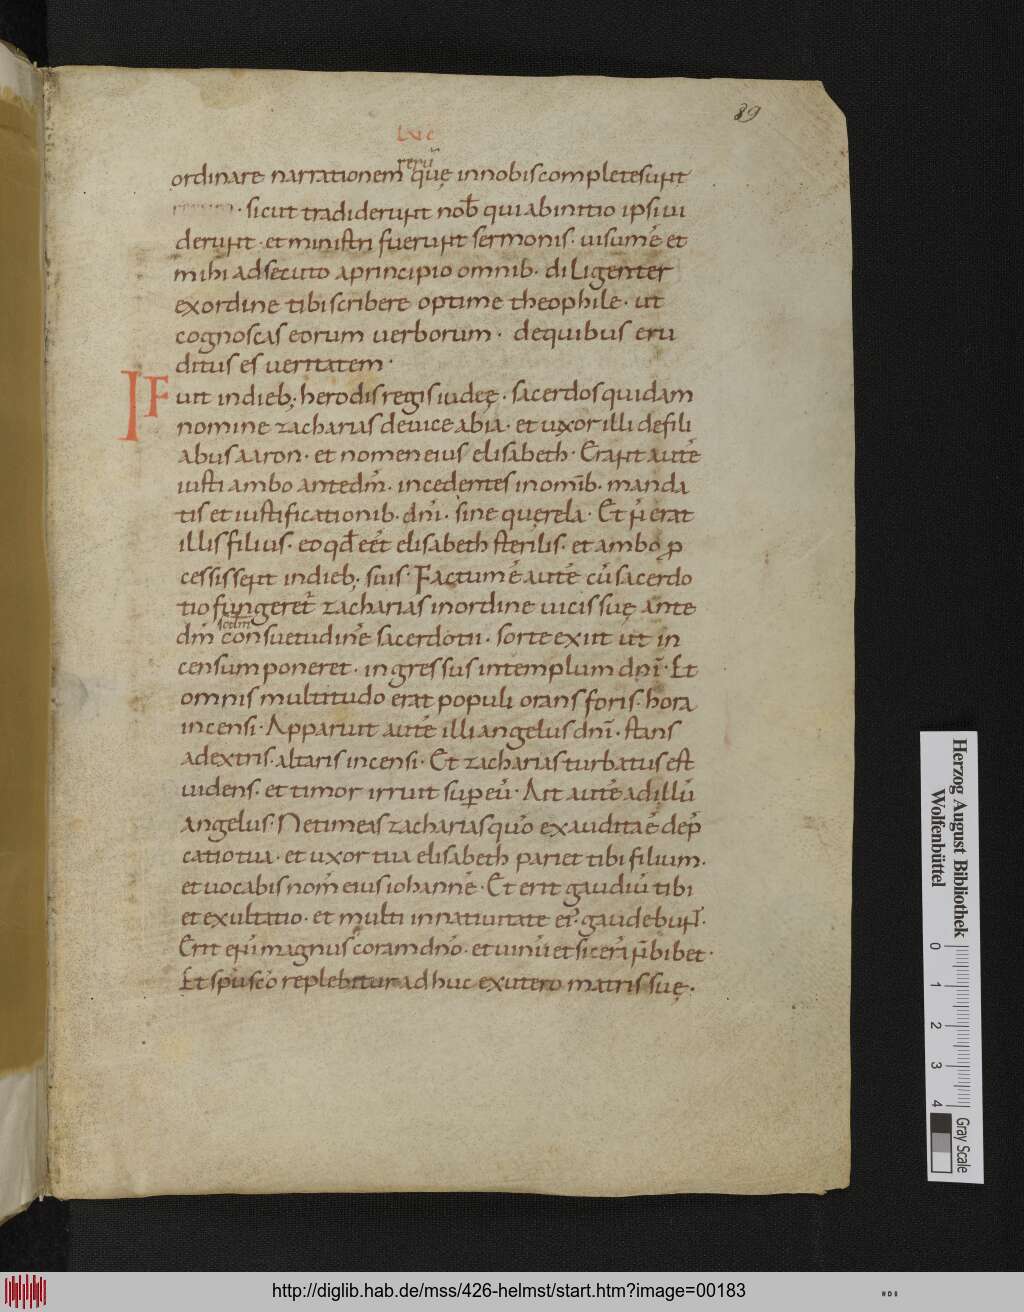 89
LVC
rerū
ordinare narrationem quę in nobis complete sunt
sicut tradiderunt nob̄ qui ab initio ipsi ui
derunt · et ministri fuerunt sermonis · uisum ē et
mihi adsecuto a principio omnib · diligenter
ex ordine tibi scribere optime theophile · ut
cognoscas eorum uerborum · de quibus eru
ditus es ueritatem ·
I Fuit in dieb; herodis regis iudeę · sacerdos quidam
nomine zacharias de uice abia · et uxor illi de fili
abus aaron · et nomen eius elisabeth · Erant autē
iusti ambo ante dm̄ · incedentes in omīb · manda
tis et iustificationib · dn̄i · sine querela · Et n̄ erat
illis filius · eo qd̄ eēt elisabeth sterilis · et ambo p
cessissent in dieb; suis · Factum ē autē cū sacerdo
tio fungeret̄ zacharias in ordine uicis suę ante
dm̄ consuetudinē sacerdotii · sorte exiit ut in
censum poneret · ingressus in templum dn̄i · Et
omnis multitudo erat populi orans foris · hora
incensi · Apparuit autē illi angelus dn̄i · stans
a dextris · altaris incensi · Et zacharias turbatus est
uidens · et timor irruit sup eū · Ait autē ad illū
angelus · Ne timeas zacharias quō exaudita ē dep̄
catio tua · et uxor tua elisabeth pariet tibi filium ·
et uocabis nom̄ eius iohannē · Et erit gaudiū tibi
et exultatio · et multi in natiuitate ei · gaudebunt̄ ·
Erit enī magnus coram dn̄o · et uinū et sicerā n̄ bibet ·
Et spū scō replebitur adhuc ex utero matris suę ·
Herzog August Bibliothek
Wolfenbüttel
0 1 2 3 4
Gray Scale
http://diglib.hab.de/mss/426-helmst/start.htm?image=00183